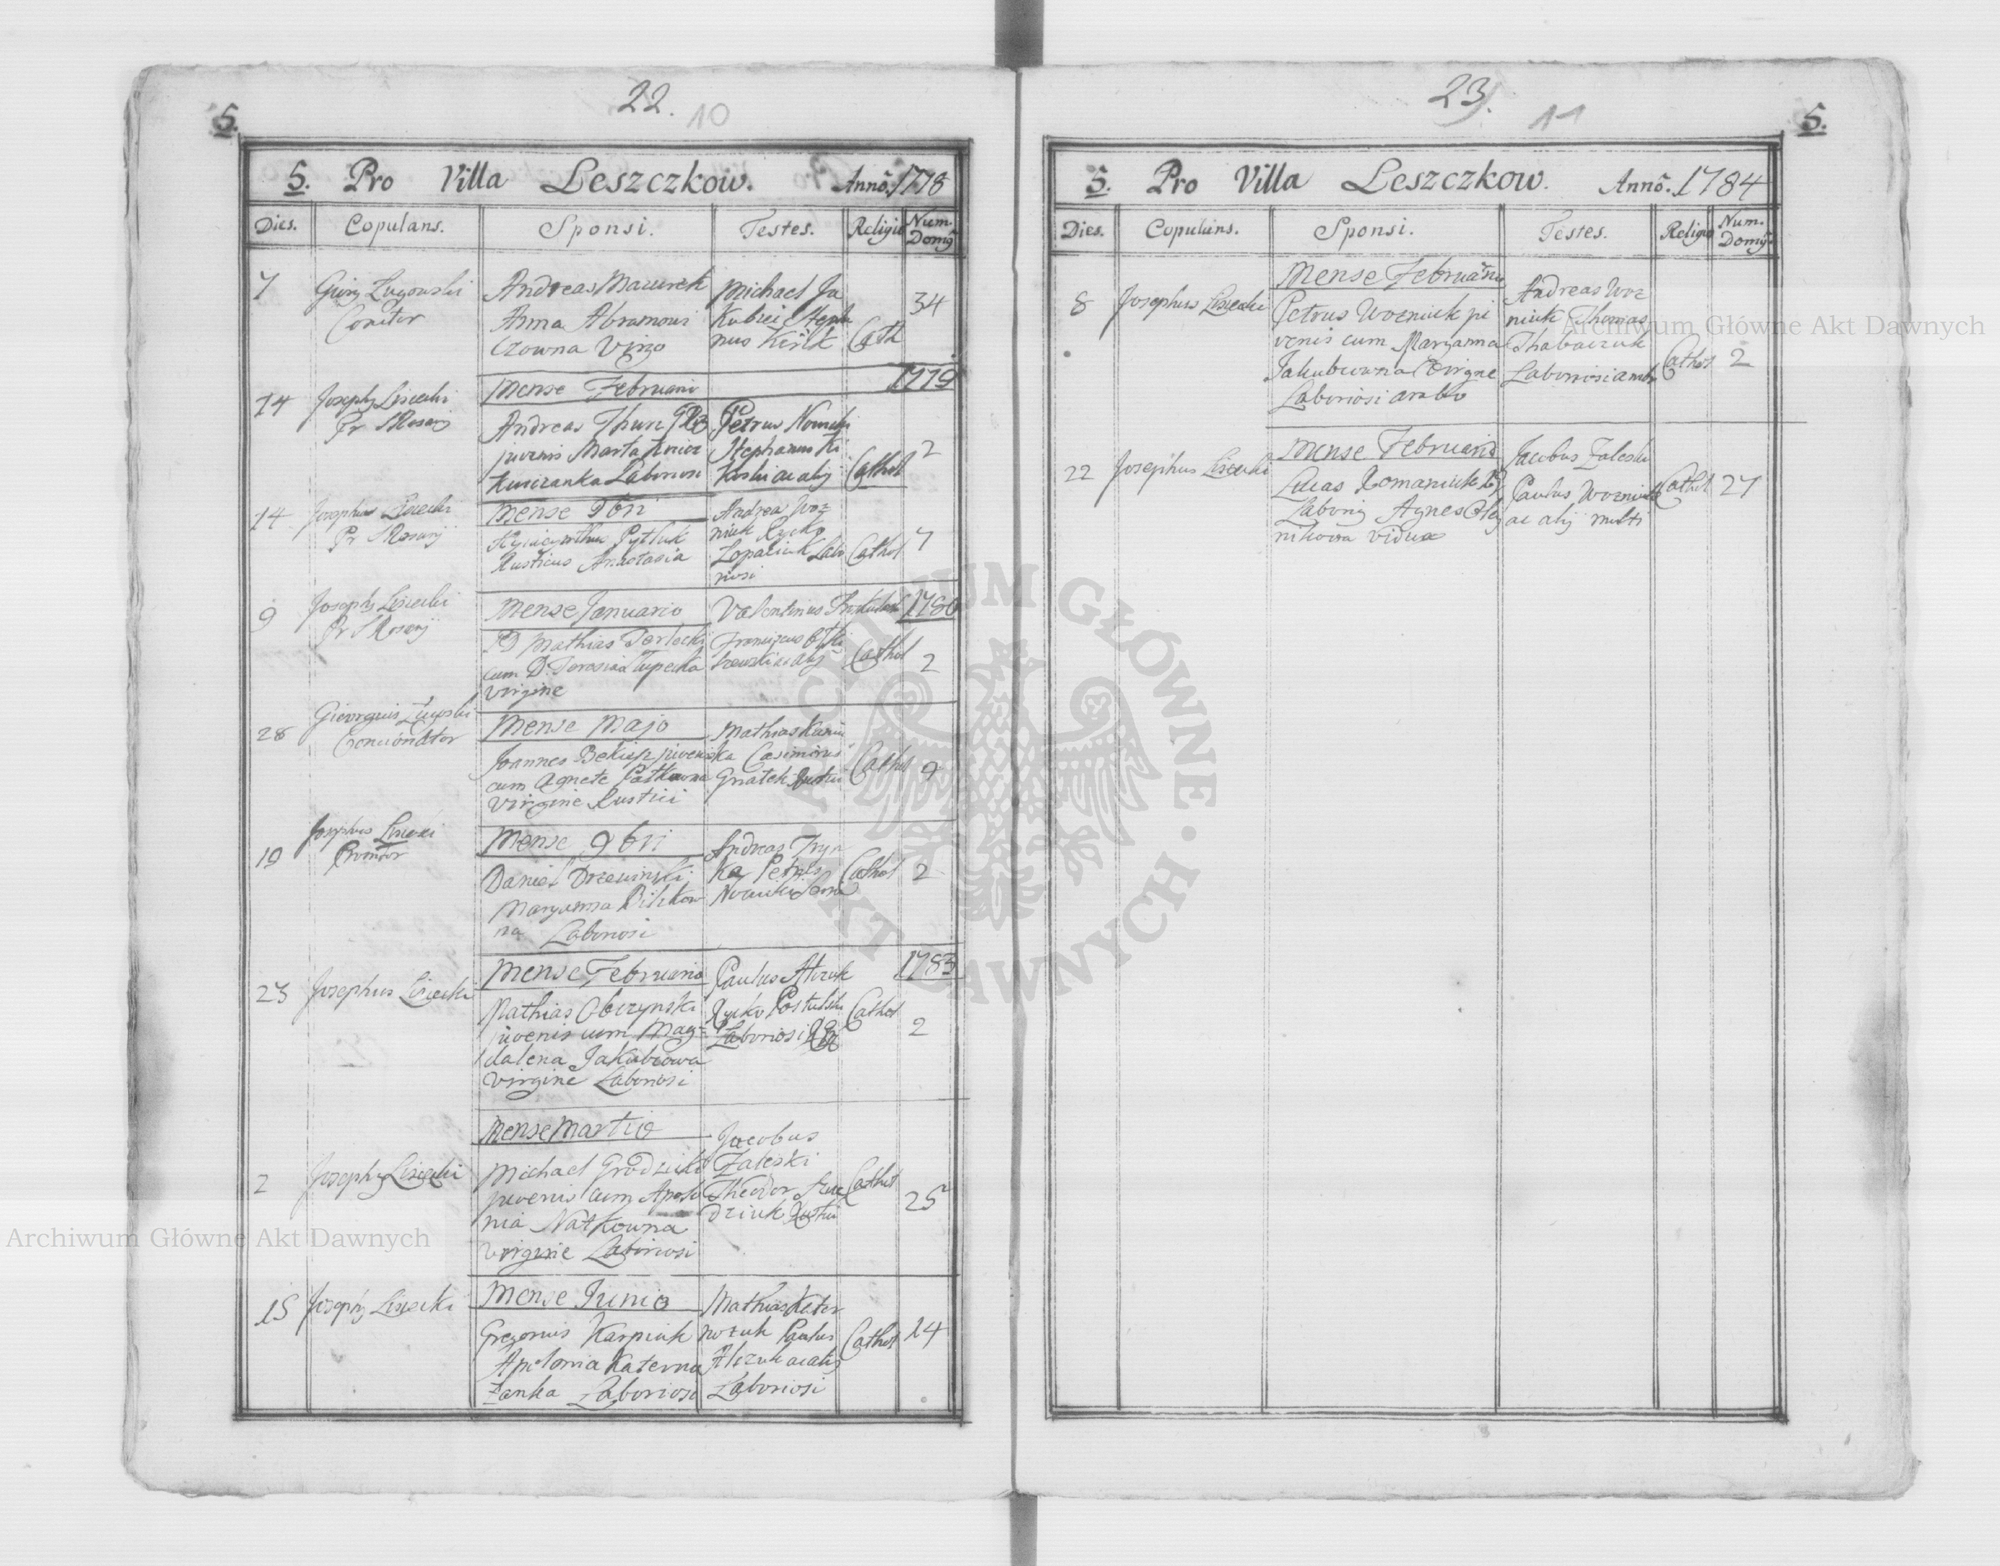 22.
10
5.
5. Pro Villa Leszczkow. Annō. 1778
Dies. Copulans. Sponsi. Testes. Religio Num. Domȳ
7
Concitor
Andreas Mazurek
Anna Abramowi
czowna Virgo
Michael Ja
Kubiec Steph
nus
Cath
34
1779
14
Joseph Lisiecki
Pr S Rosarij
Mense Februario
Andreas
juvenis Marta
Laboriosi
Petrus Nowicki
Stephanus Ki
ac alij
Cathol
2
14
Josephus Lisiecki
Pr S Rosarij
Mense
Hyiacynthus Pytluk
Rusticus Anastasia
Andreas Woz
niuk Rycko
Lopaciuk Labo
riosi
Cathol
7
1780
9
Joseph Lisiecki
Pr S Rosarij
Mense Januario
D Mathias Terlecki
cum D. Teresia
virgine
Valentinus
Cathol
2
28
Concionator
Mense Majo
Joannes juvenis
cum Agnete Patkowna
Virgine Rustici
Mathias
ka Casimirus
Gnatek Rustici
Cathol
9
19
Josephus Lisiecki
Promotor
Mense 9bri
Daniel Drzewinski
Maryanna Bilikow
na Laboriosi
Andreas Fryn
ka Petrus
Nowicki
Cathol
2
1783
23
Josephus Lisiecki
Mense Februario
Mathias Obczynski
juvenis cum Mag=
dalena Jakubiowa
virgine Laboriosi
Paulus
Rycko Postulski
Laboriosi
Cathol
2
2
Joseph Lisiecki
Mense Martio
Michael Grodziuk
juvenis cum Apolo
nia Natkowna
virgine Laboriosi
Jacobus
Zaleski
Theodor
dziuk Rustici
Cathol
25
15
Joseph Lisiecki
Mense Junio
Gregorius Karpiuk
Apolonia Katerna
zanka Laboriosi
Mathias Kater
nozuk Paulus
ac alij
Laboriosi
Cathol
14
23.
11
5.
5. Pro Villa Leszczkow. Annō. 1784
Dies. Copulans. Sponsi. Testes. Religio Num. Domȳ
8
Josephus Lisiecki
Mense Februario
Petrus Wozniuk ju
venis cum Maryanna
Jakubiowna Virgine
Laboriosi ambo
Andreas Woz
niuk Thomas
Laboriosi ambo
Cathol
2
22
Josephus Lisiecki
Mense Februario
Lucas Romaniuk
Agnes Olej
nikowa vidua
Jacobus Zaleski
Paulus Wozniuk
ac alij multi
Cathol
27
Archiwum Główne Akt Dawnych
Archiwum Główne Akt Dawnych
ARCHIWUM GŁÓWNE AKT DAWNYCH